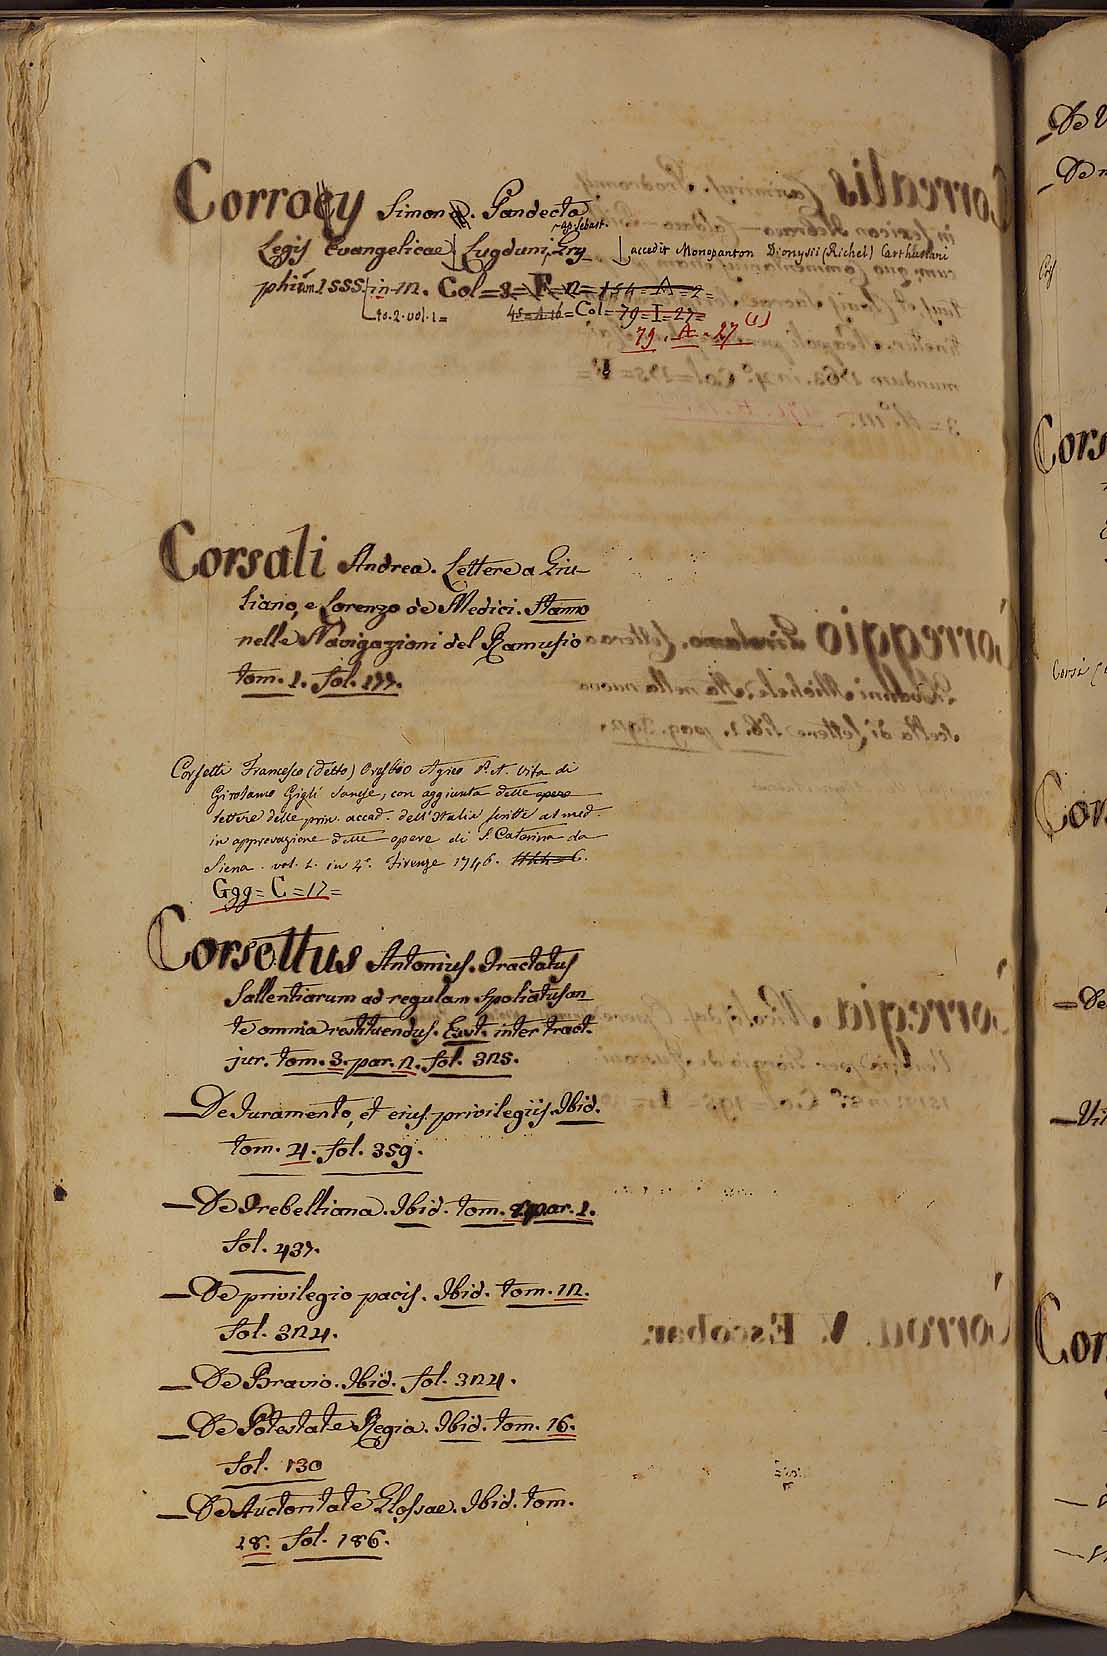 Corrocy Simon. Pandecta
ap. Sebast.
Legis Evangelicae Lugduni, Gry
accedit Monopanton Dionysii (Richel) Carthusiani
phium 1555. in 12. Col=
to. 2. vol. 1= 45=A 16=Col=79=I=27=
79. A. 27 (1)
Corsali Andrea. Lettere a Giu-
liano, e Lorenzo de Medici. Stanno
nelle Navigazioni del Ramusio
tom. 1. fol. 177.
Corsetti Francesco (detto) Oresbio Agieo P. A. Vita di
Girolamo Gigli Sanese, con aggiunta delle opere
lettere delle prin. accad. dell'Italia scritte al med.
in approvazione delle opere di S. Caterina da
Siena. vol. 1. in 4°. Firenze 1746.
Ggg=C=12=
Corsettus Antonius. Tractatus
Sallentiarum ad regulam Spoliatus an
te omnia restituendus. Exst. inter tract.
jur. tom. 3. par. 2. fol. 325.
— De Iuramento, et eius privilegiis. Ibid.
tom. 4. fol. 359.
— De Trebelliana. Ibid. tom. 8. par. 1.
fol. 437.
— De privilegio pacis. Ibid. tom. 12.
fol. 324.
— De Bravio. Ibid. fol. 324.
— De Potestate Regia. Ibid. tom. 16.
fol. 130
— De Auctoritate Glossae. Ibid. tom.
18. fol. 186.